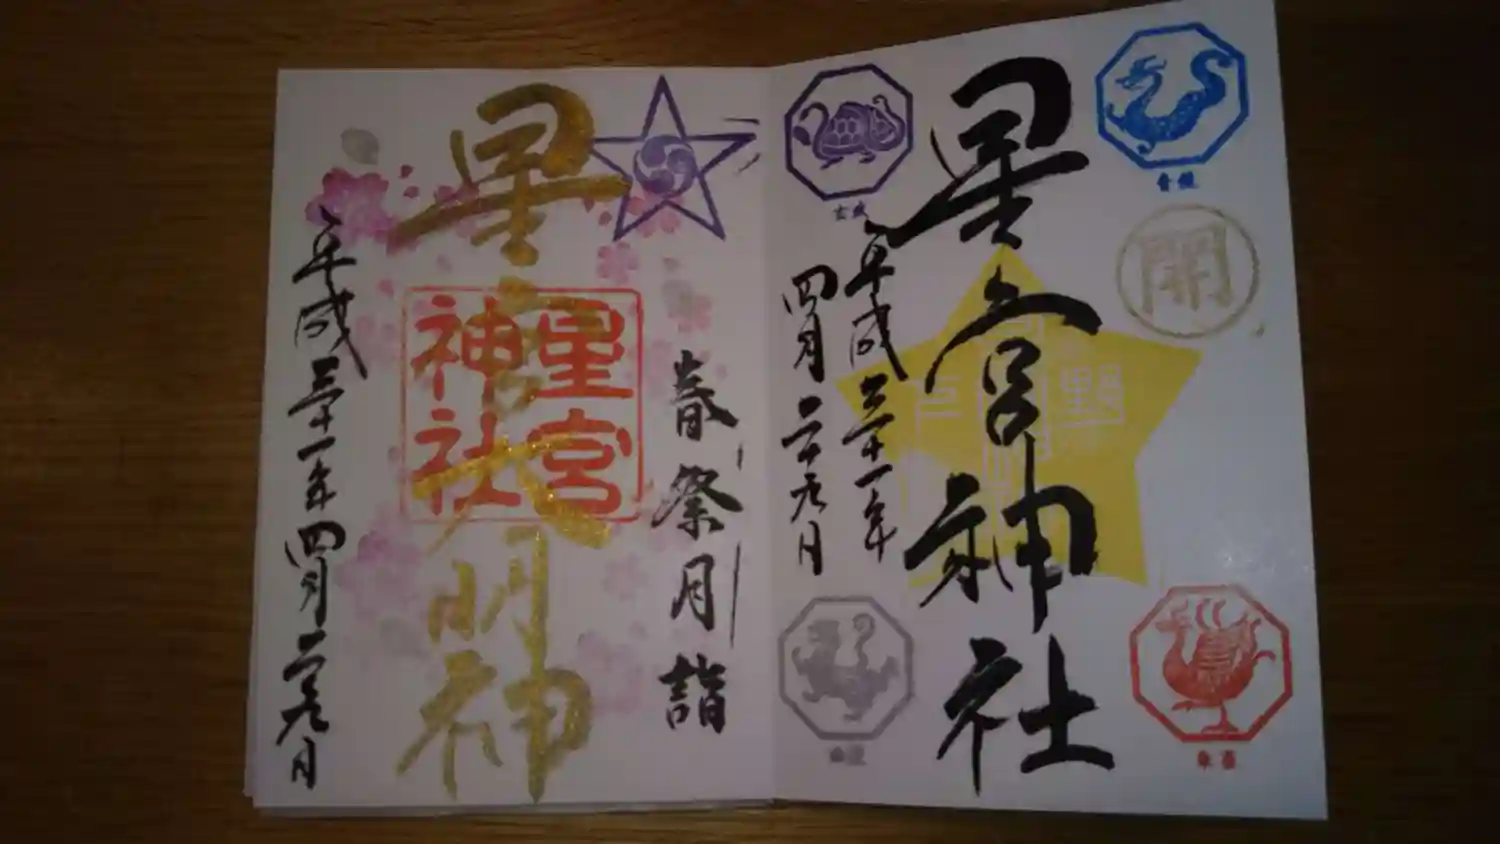 青龍
開
星宮神社
野
朱雀
玄武
平成三十一年
四月二十九日
春祭月詣
星宮大明神
星宮
神社
平成三十一年四月二十九日